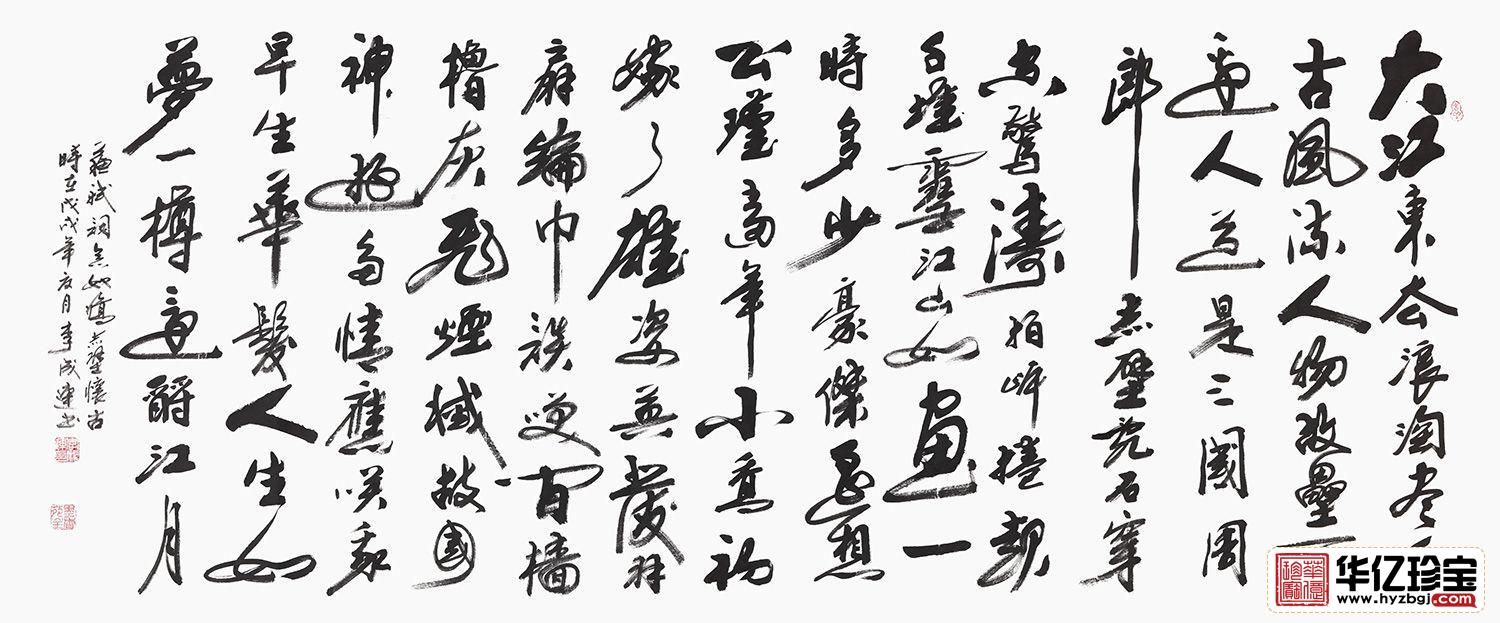 大江東去浪淘尽千
古風流人物故壘西
邊人道是三國周
郎赤壁乱石穿
空驚濤拍岸捲起
千堆雪江山如畫一
時多少豪傑遥想
公瑾當年小喬初
嫁了雄姿英發羽
扇綸巾談笑间檣
櫓灰飛煙滅故國
神遊多情應笑我
早生華髮人生如
夢一樽還酹江月
蘇軾詞念奴嬌赤壁懷古
時在戊戌年月李成連書
华亿珍宝
www.hyzbgj.com